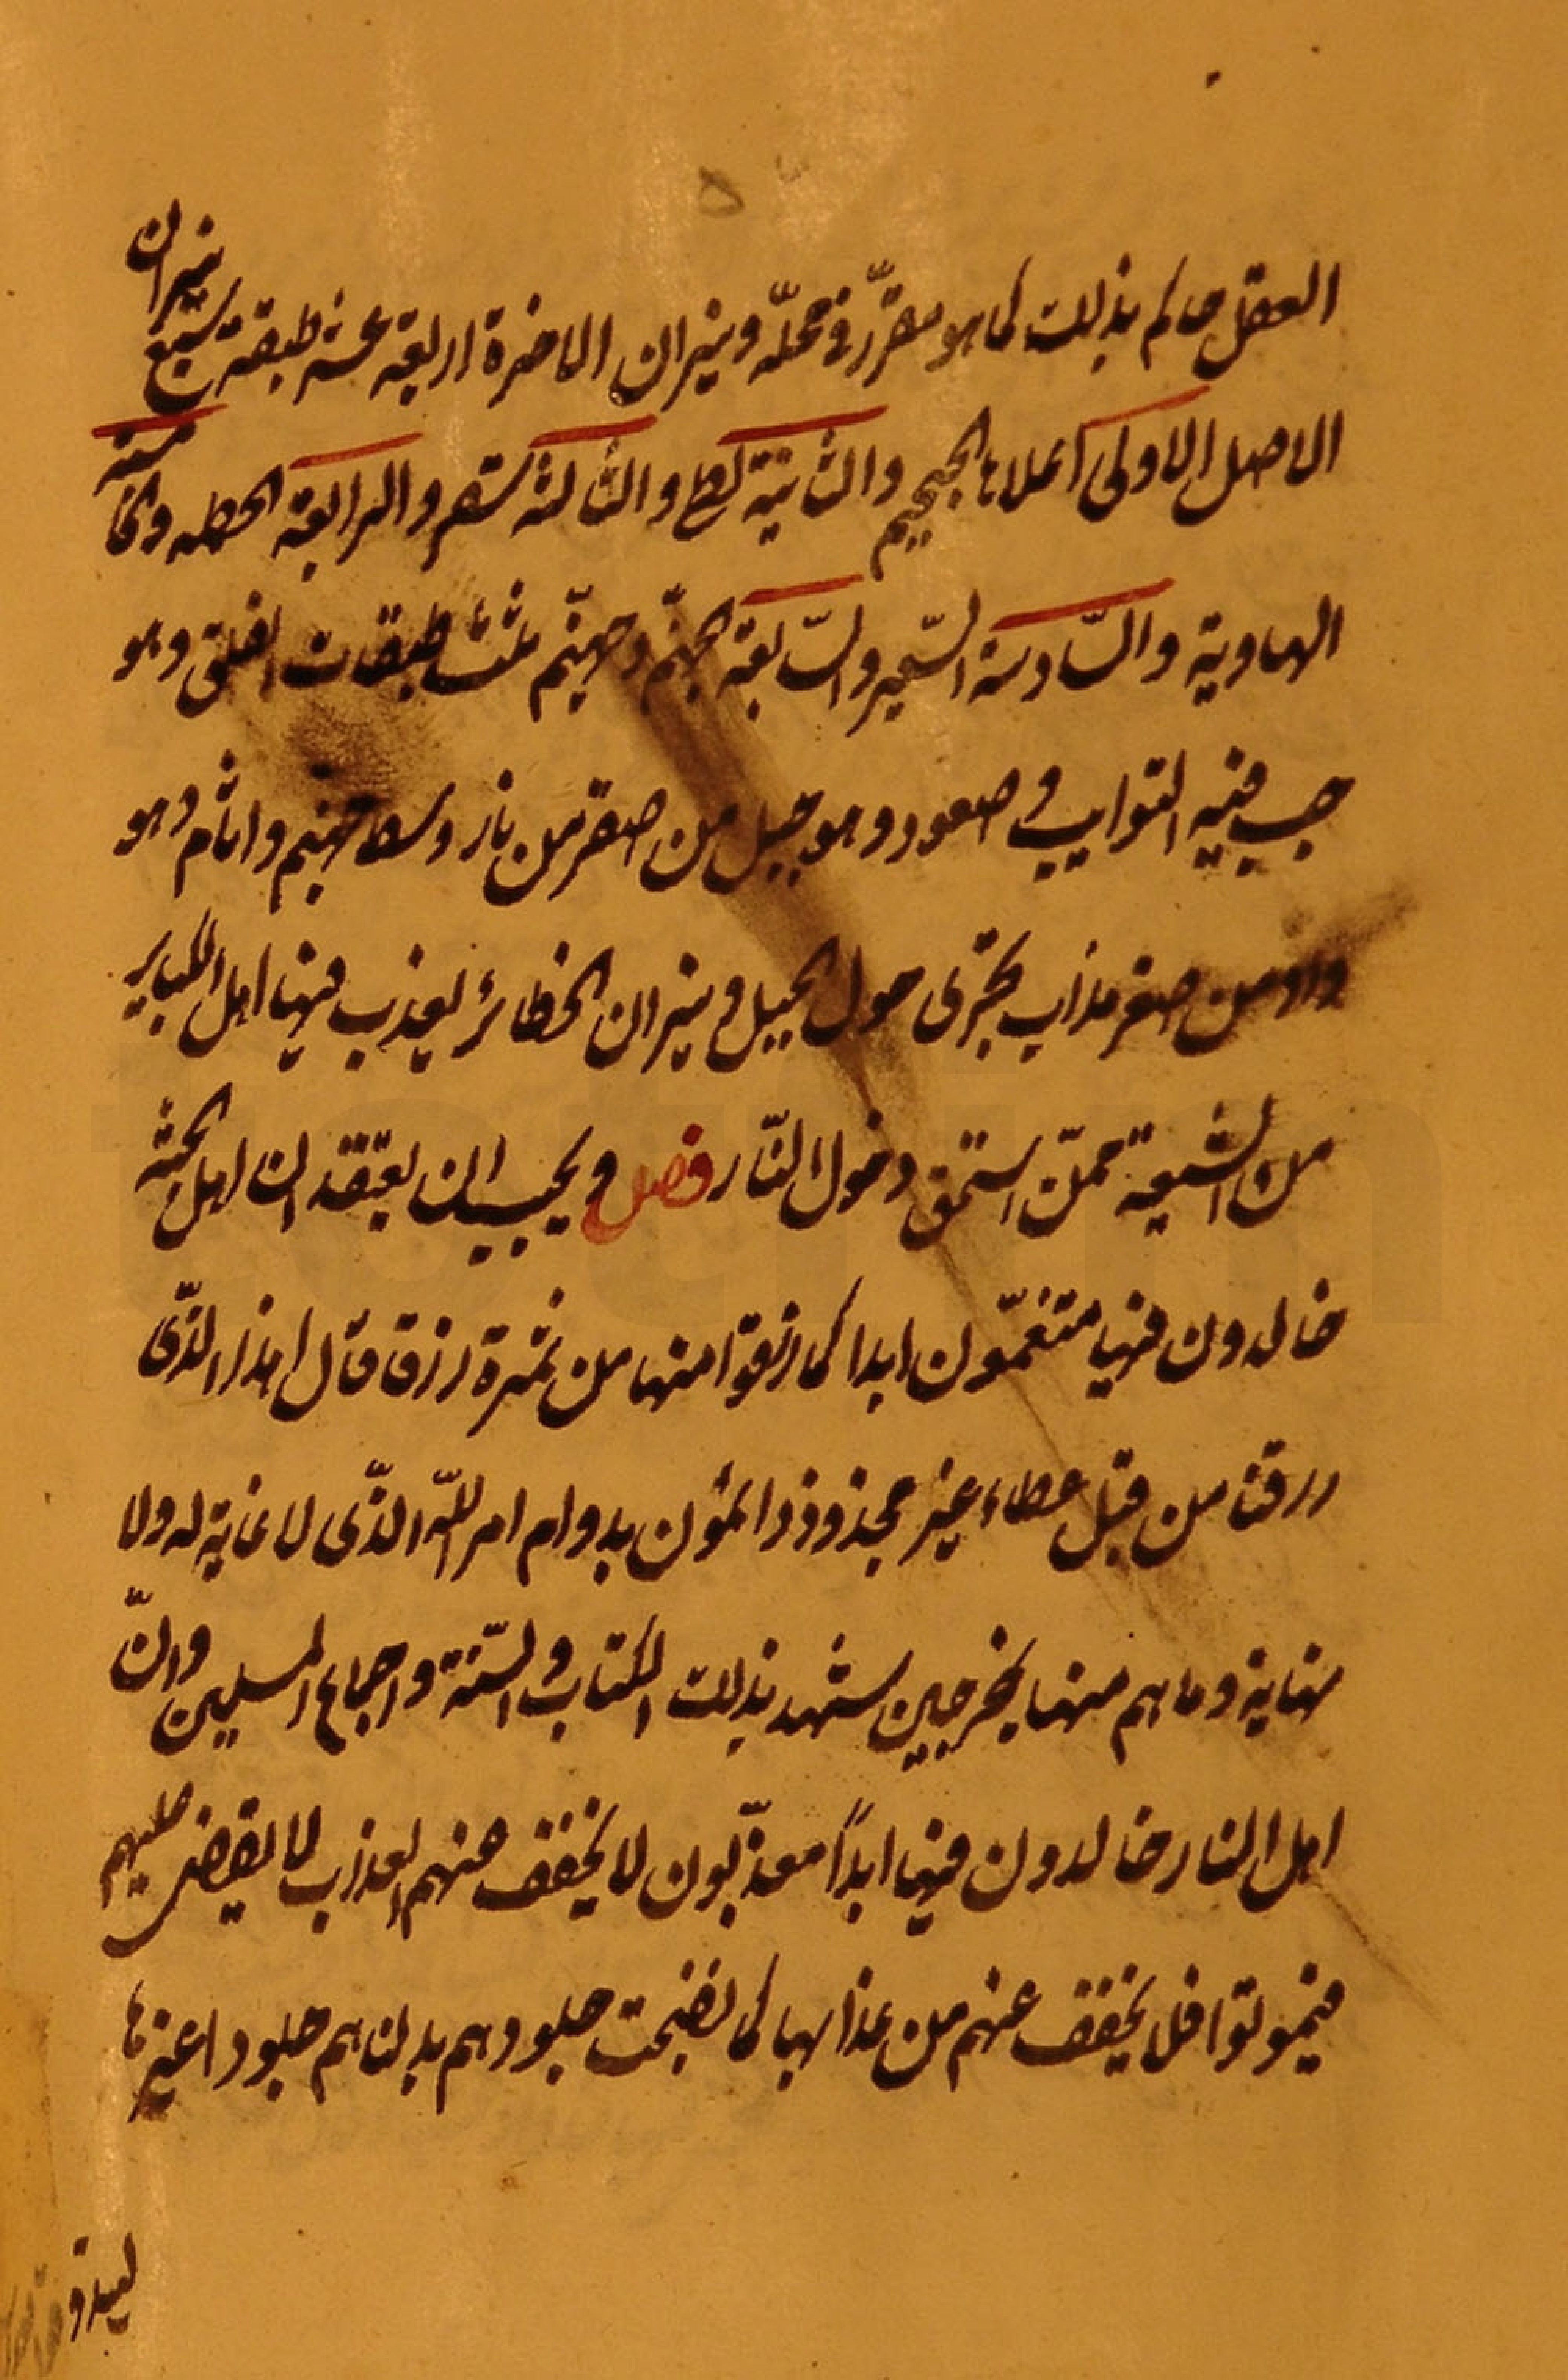 ٥
العقل حاكم بذلك كما هو مقرّر في محلّه ونيران الاخرة اربعة عشر طبقة سبع نيران
الاصل الاولى اعلاها الجحيم والثانية لظى والثالثة سقر والرابعة الحطمه والخامسة
الهاوية والسّادسة السّعير والسّابعة جهنّم وجهنّم ثلث طبقات الفلق وهو
جب فيه التوابيت وصعود وهو جبل من صفر من نار وسط جهنم واثام وهو
واد من صفر مذاب يجرى حول الجبل ونيران الحظائر يعذب فيها اهل الكباير
من الشيعة ممّن استحق دخول النّار فصل ويجب ان يعتقد ان اهل الجنّة
خالدون فيها متنعّمون ابدا كما رزقوا منها من ثمرة رزقا قالوا هذا الذّى
رزقنا من قبل عطاء غير مجذوذ دائمون بدوام امر اللّه الذّى لا غاية له ولا
نهاية وما هم منها بمخرجين يشهد بذلك الكتاب والسّنة واجماع المسلمين وانّ
اهل النار خالدون فيها ابداً معذّبون لا يخفف عنهم العذاب لا يقضى عليهم
فيموتوا فلا يخفف عنهم من عذابها كما نضجت جلودهم بدلناهم جلودا غيرها
ليذوقوا